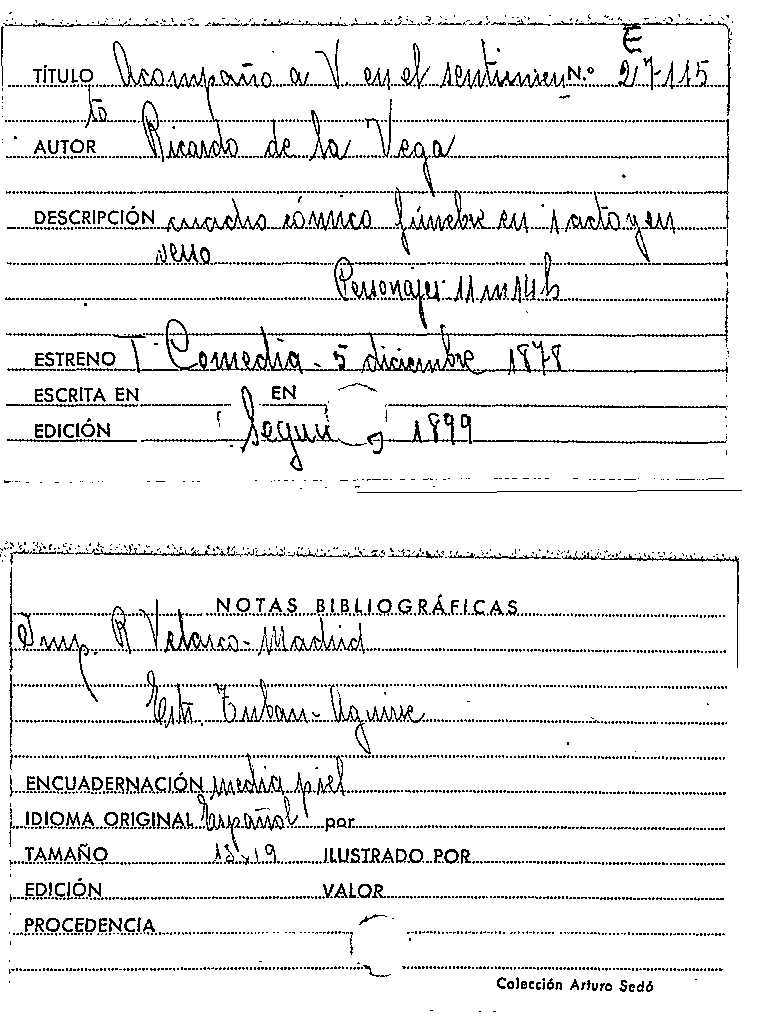 E
TÍTULO Acompaño a V. en el sentimien N.º 27-115
to
AUTOR Ricardo de la Vega
DESCRIPCIÓN cuadro cómico fúnebre en 1 acto y en
verso
Personajes 11 m 14 h
ESTRENO T. Comedia - 5 diciembre 1878
ESCRITA EN EN
EDICIÓN Segun 1899
NOTAS BIBLIOGRÁFICAS
Imp. R Velasco - Madrid
Estr. Tubau - Aguirre
ENCUADERNACIÓN media piel
IDIOMA ORIGINAL Español por
TAMAÑO 13x19 ILUSTRADO POR
EDICIÓN VALOR
PROCEDENCIA
Colección Arturo Sedó